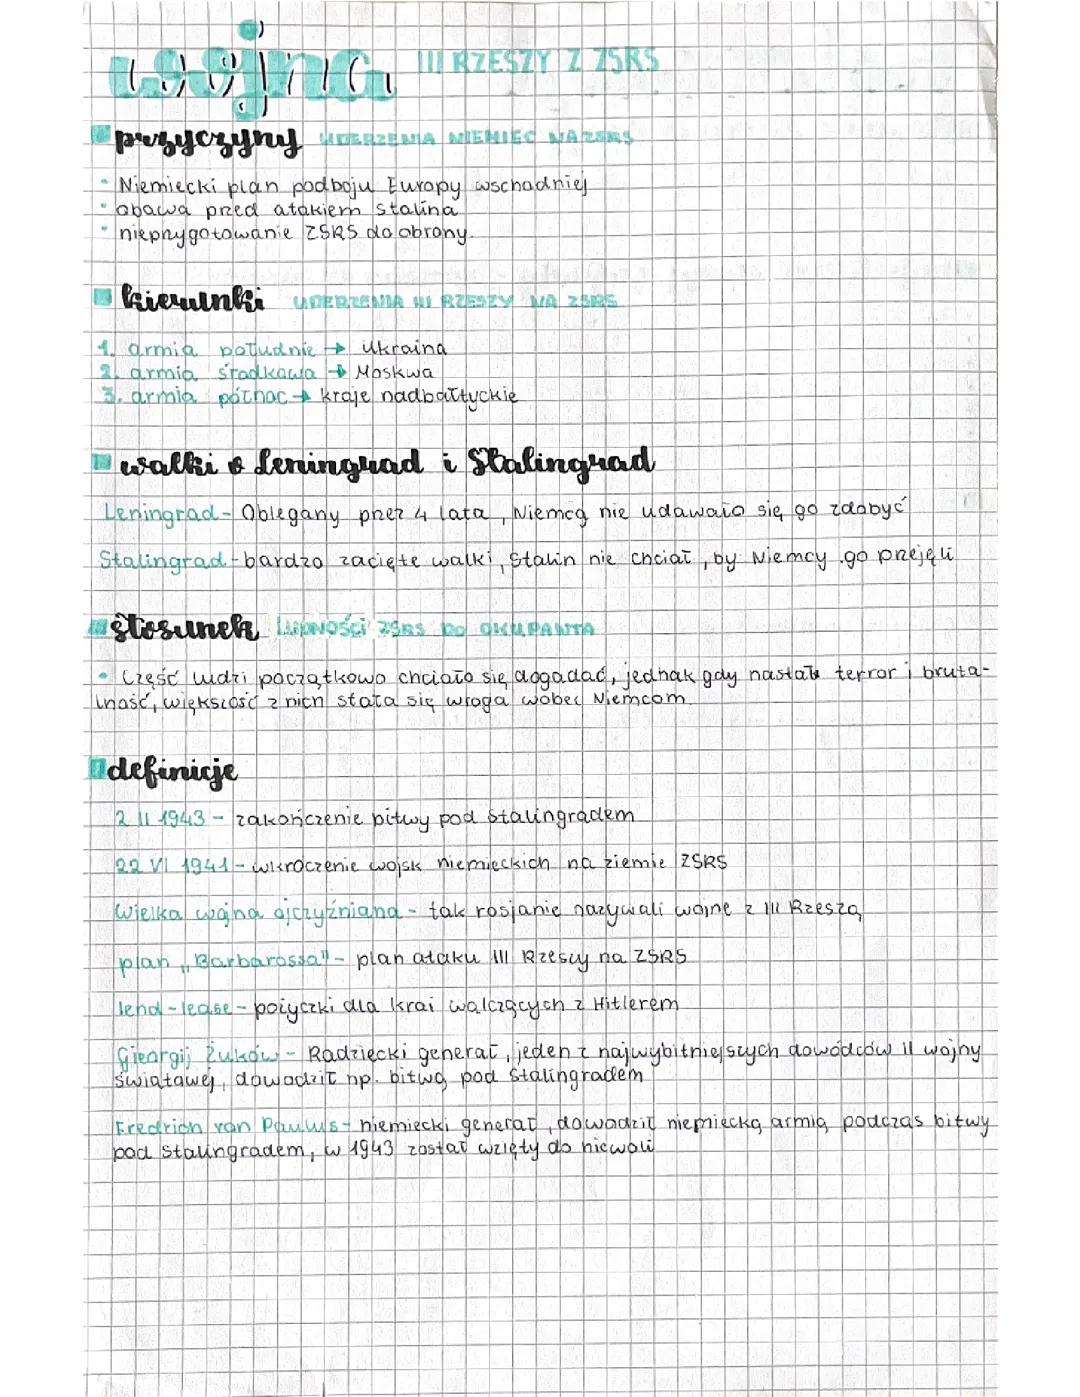 wojna III RZESZY Z ZSRS
przyczyny UDERZENIA NIEMIEC NA ZSRS
• Niemiecki plan podboju Europy wschodniej
• obawa przed atakiem Stalina
• nieprzygotowanie ZSRS do obrony.
kierunki UDERZENIA III RZESZY NA ZSRS
1. armia południe → Ukraina
2. armia środkowa → Moskwa
3. armia północ → kraje nadbałtyckie
walki o Leningrad i Stalingrad
Leningrad - Oblegany przez 4 lata, Niemcą nie udawało się go zdobyć
Stalingrad - bardzo zacięte walki, Stalin nie chciał, by Niemcy go przejęli
stosunek LUDNOŚCI ZSRS DO OKUPANTA
• Część ludzi początkowo chciało się dogadać, jednak gdy nastał terror i bruta-
lność, większość z nich stała się wroga wobec Niemcom.
definicje
2 II 1943 - zakończenie bitwy pod Stalingradem
22 VI 1941 - wkroczenie wojsk niemieckich na ziemie ZSRS
Wielka wojna ojczyźniana - tak rosjanie nazywali wojnę z III Rzeszą
plan „Barbarossa" - plan ataku III Rzeszy na ZSRS
lend - lease - pożyczki dla krai walczących z Hitlerem
Gieorgij Żuków - Radziecki generał, jeden z najwybitniejszych dowódców II wojny
światowej, dowodził np. bitwą pod Stalingradem
Fredrich von Paulus - niemiecki generał, dowodził niemiecką armią podczas bitwy
pod Stalingradem, w 1943 został wzięty do niewoli